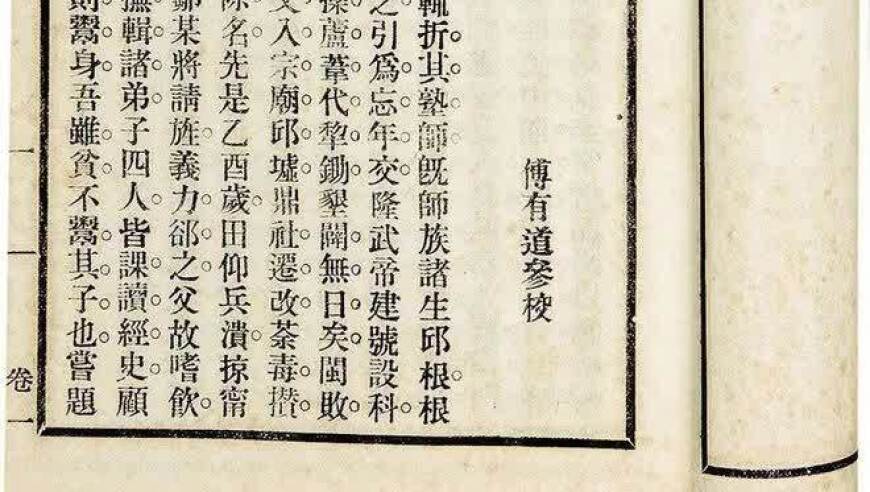 傅有道參校
輒折其塾師旣師族諸生邱根根
之引爲忘年交隆武帝建號設科
蘆葦代犂鋤墾闢無日矣閩敗
入宗廟邱墟鼎社遷改荼毒攢
除名先是乙酉歲田仰兵潰掠甯
鄒某將請旌義力郤之父故嗜飮
撫輯諸弟子四人皆課讀經史顧
則鬻身吾雖貧不鬻其子也嘗題
卷一